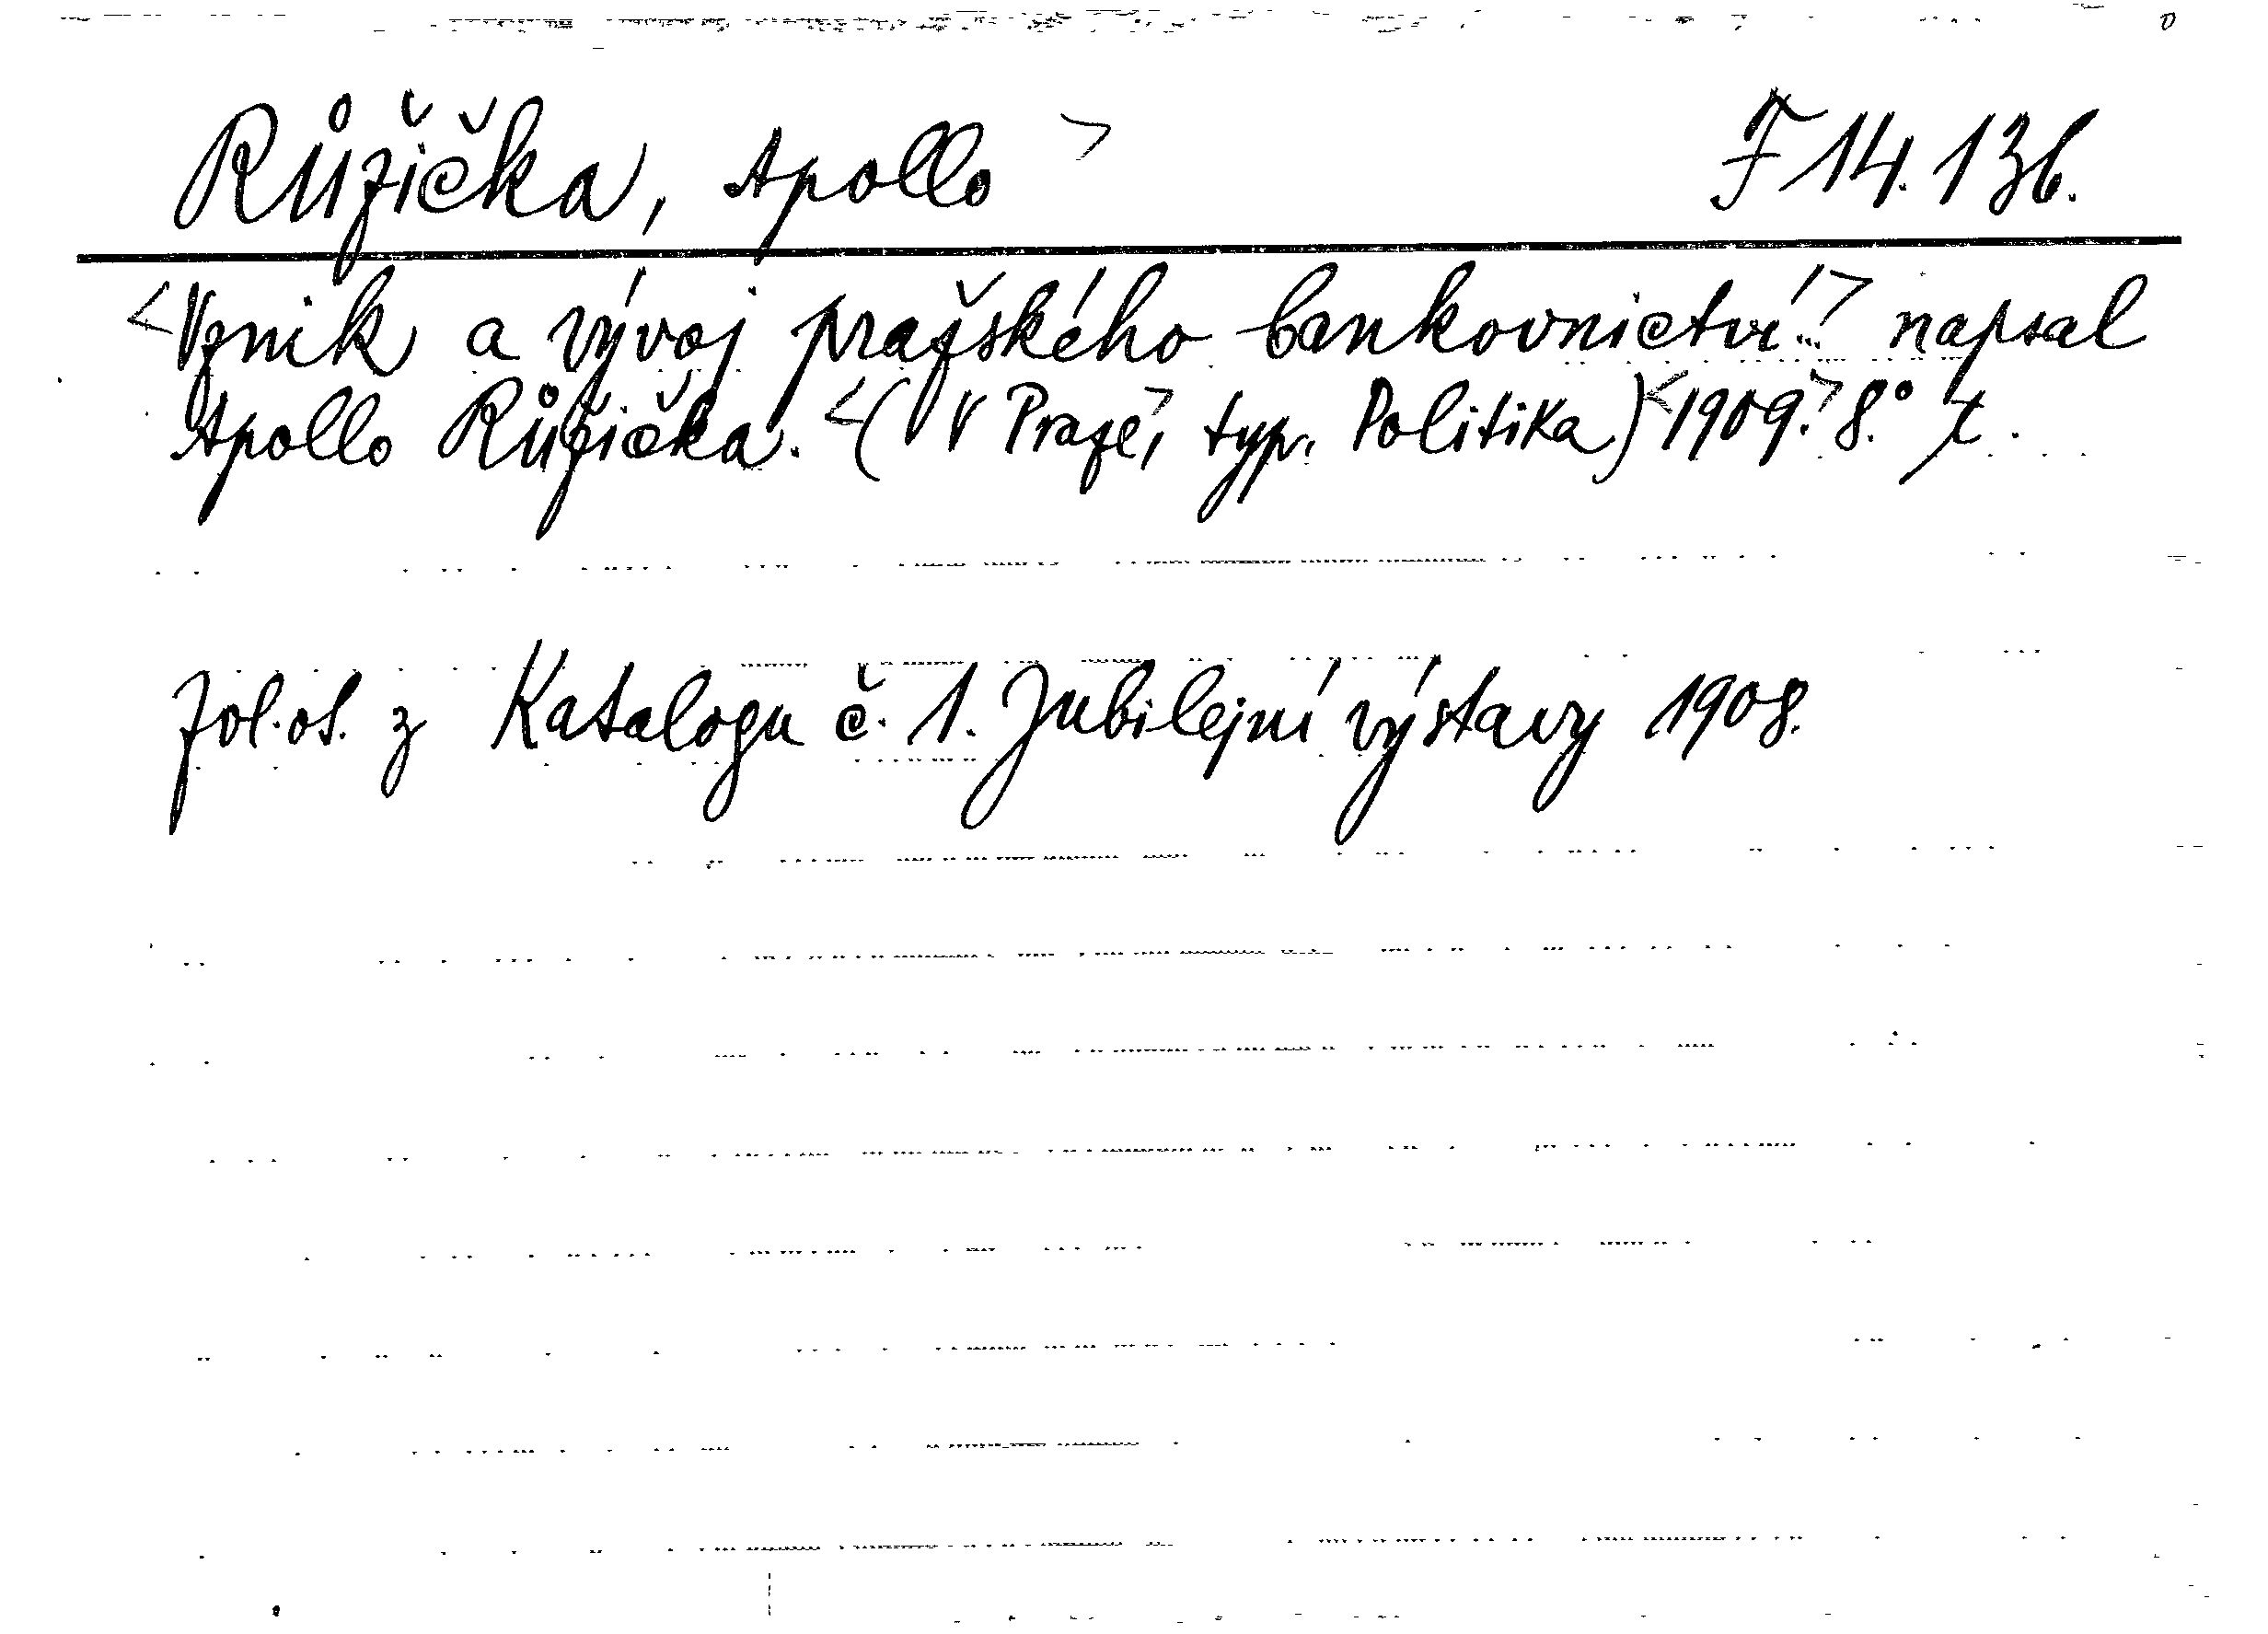 Růžička, Apollo > F 14.136.
<Vznik a vývoj pražského bankovnictví..> napsal
Apollo Růžička. <(V Praze,> typ. Politika) <1909.> 8.°
Zvl. ot. z Katalogu č. 1. Jubilejní výstavy 1908.